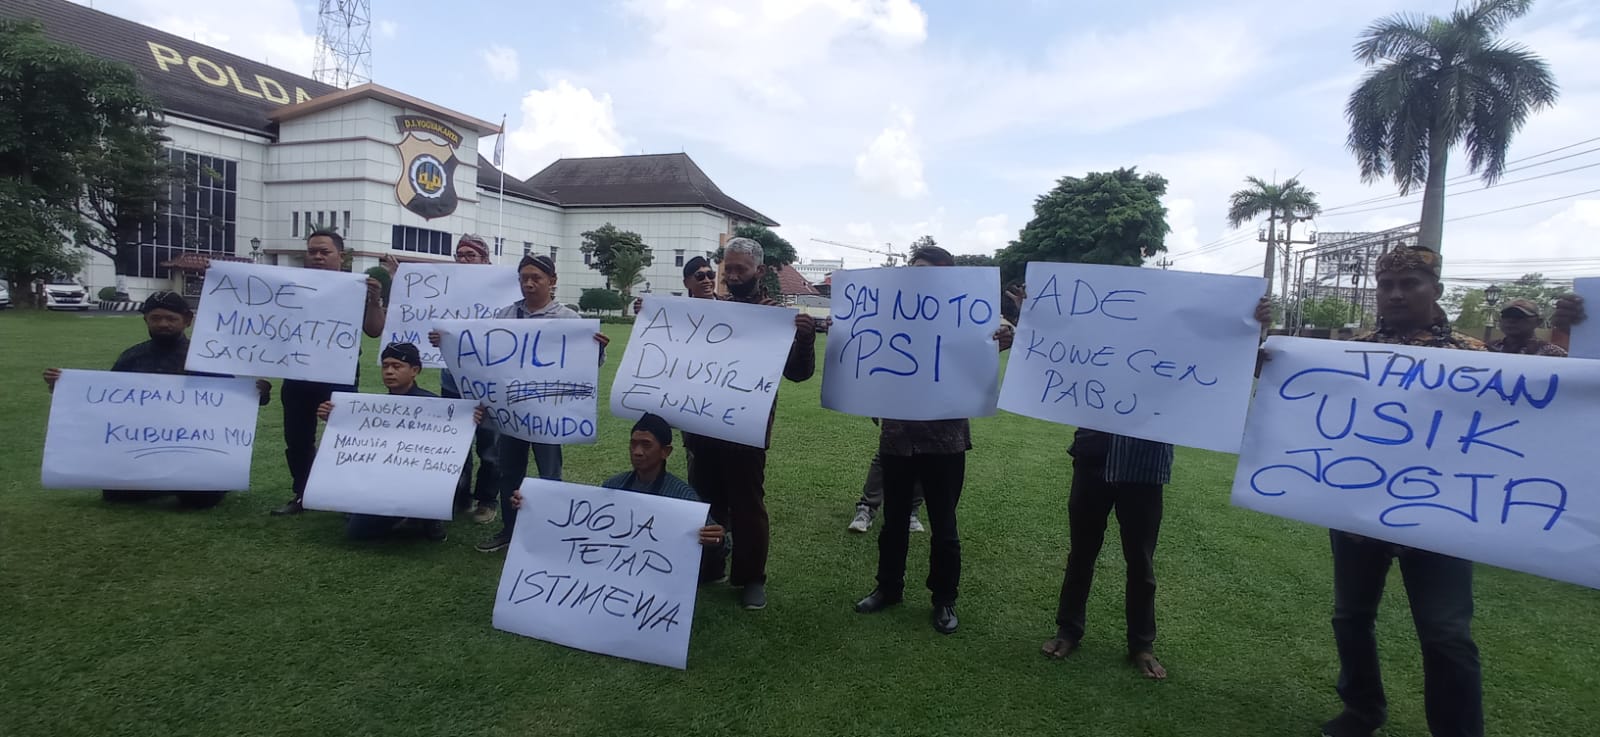 POLDA
D.I.YOGYAKARTA
ADE
MINGGAT, TO!
SACILAE
PSI
BUKAN
NYA
UCAPAN MU
KUBURAN MU
TANGKAP...!
ADE ARMANDO
MANUSIA PEMECAH-
BELAH ANAK BANGSA
ADILI
ADE ARMANDO
ARMANDO
AYO
DIUSIR AE
ENAKE
JOGJA
TETAP
ISTIMEWA
SAY NO TO
PSI
ADE
KOWE CEN
PABU.
JANGAN
USIK
JOGJA